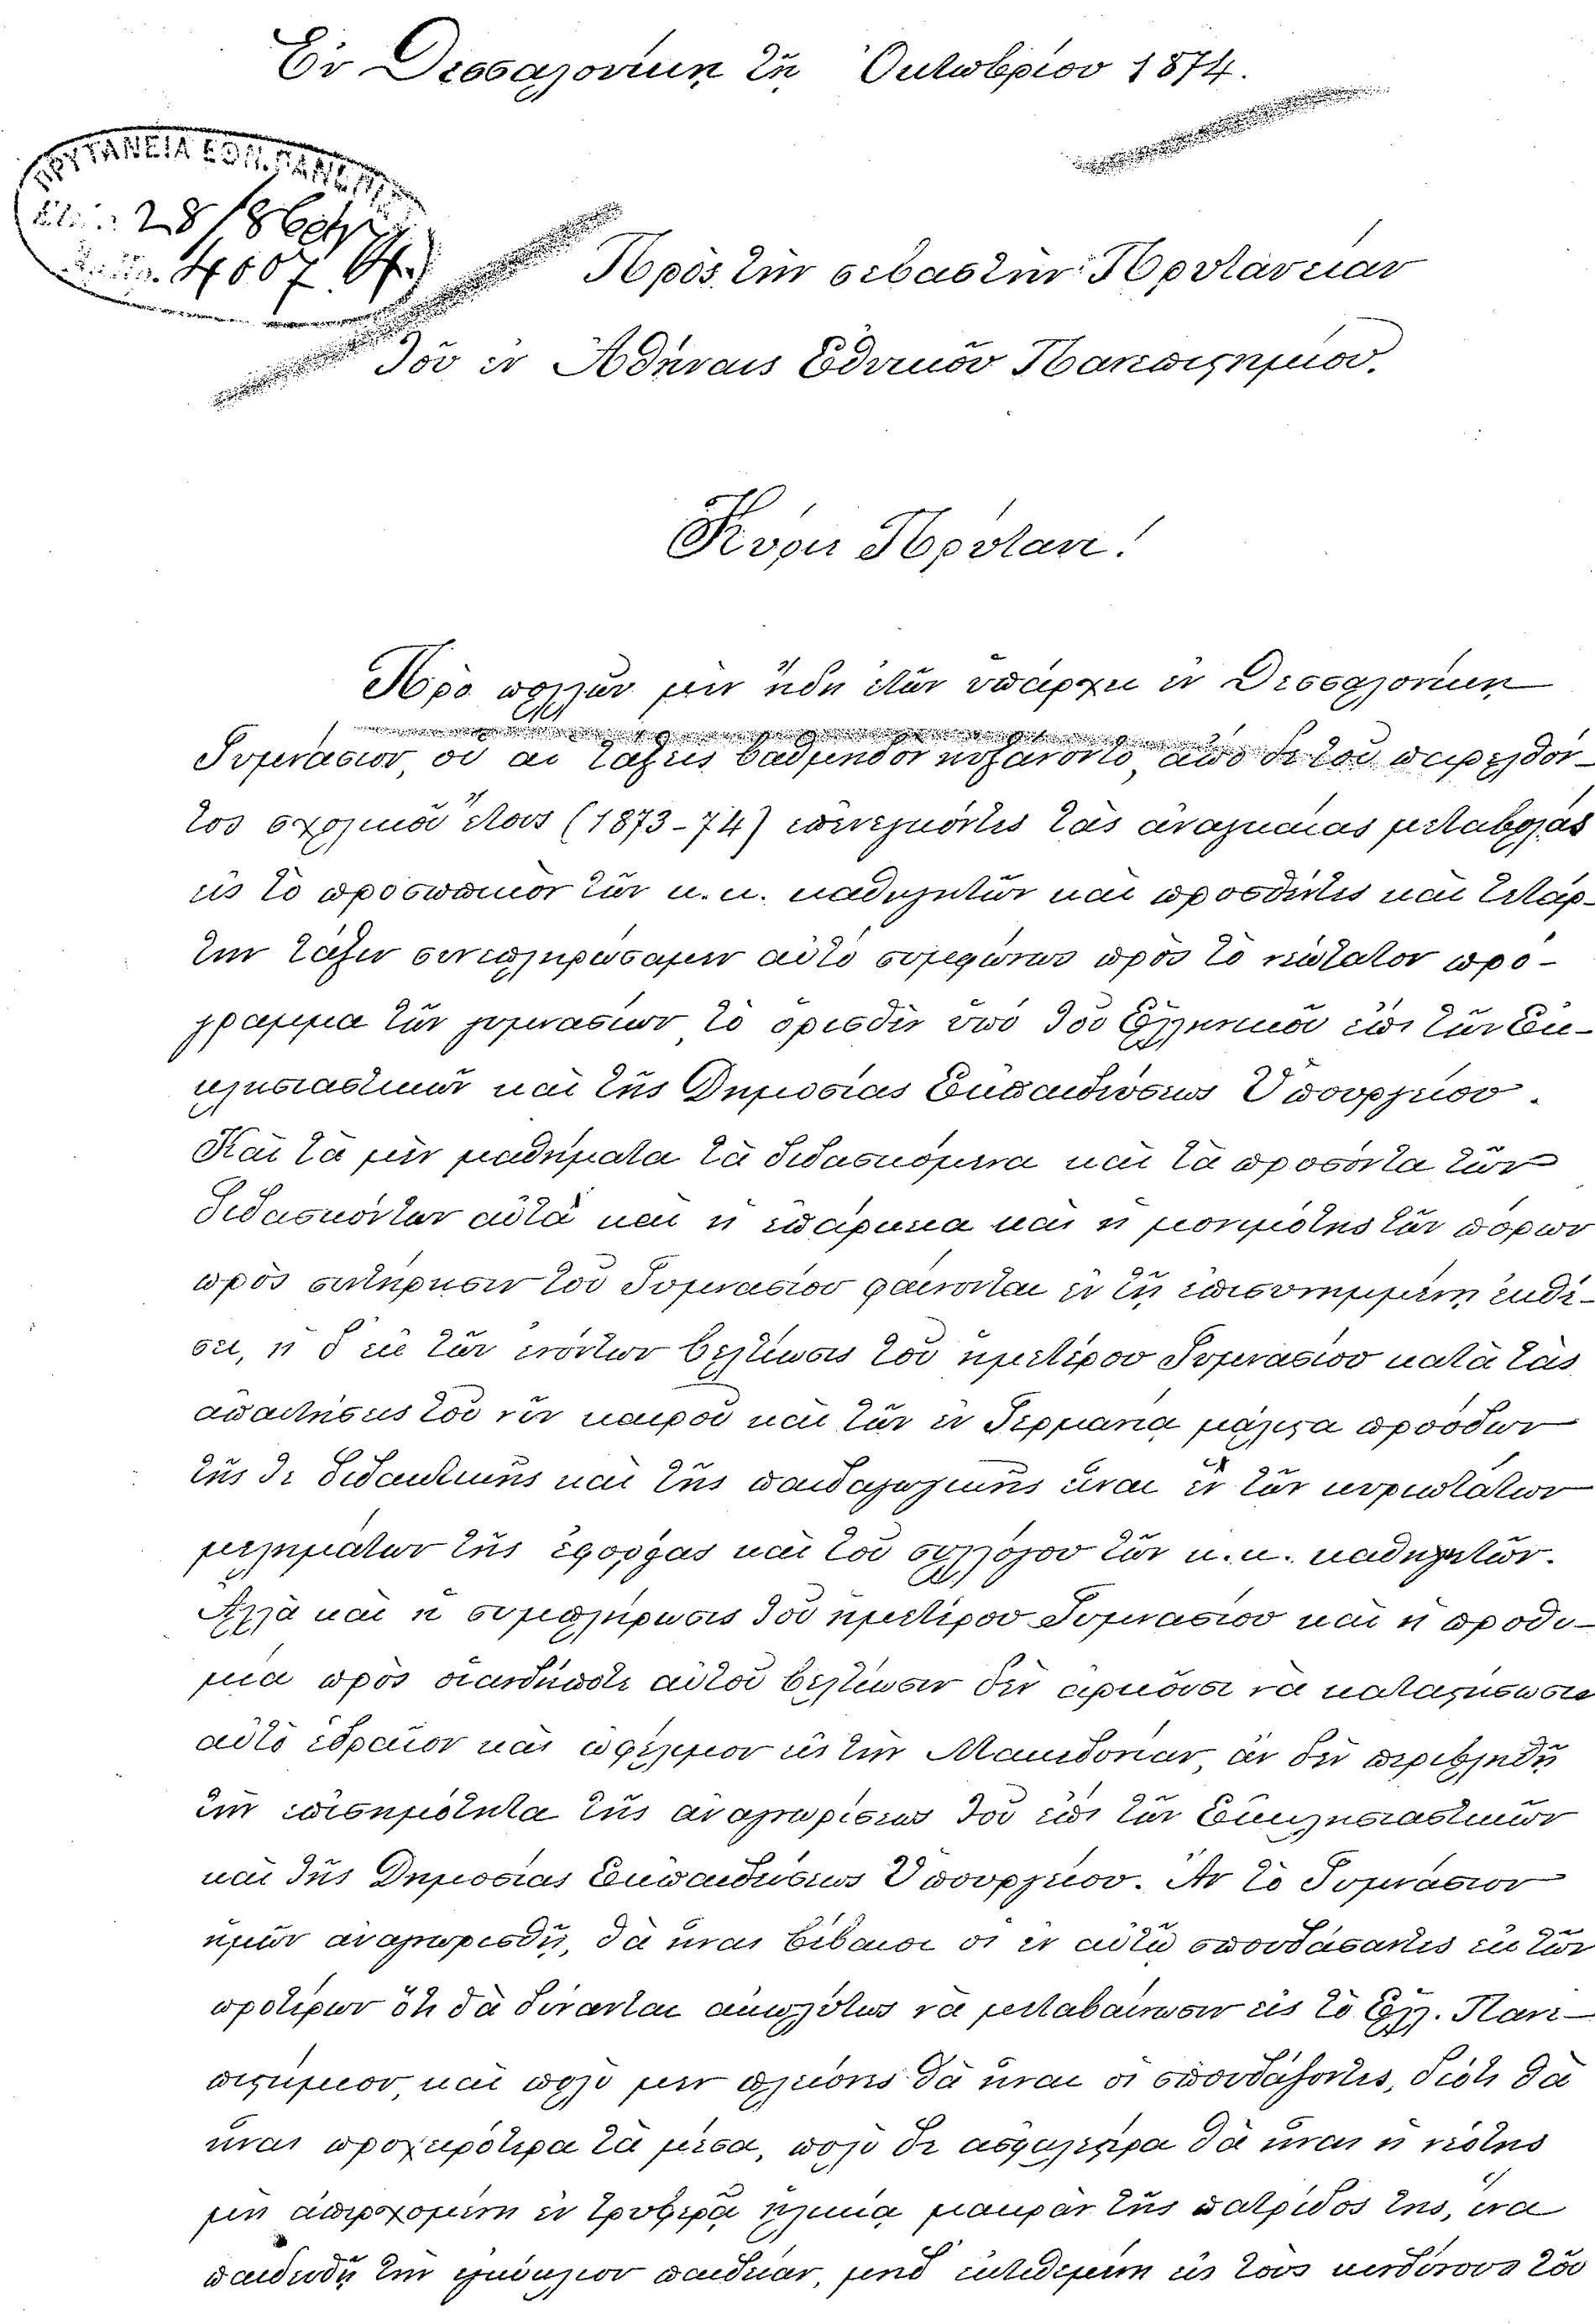 Ἐν Θεσσαλονίκῃ τῇ Ὀκτωβρίου 1874.
ΠΡΥΤΑΝΕΙΑ ΕΘΝ. ΠΑΝΕΠΙΣ
28/8βρίου
4607
Πρὸς τὴν σεβαστὴν Πρυτάνειαν
Τοῦ ἐν Ἀθήναις Ἐθνικοῦ Πανεπιστημίου.
Κύριε Πρύτανι!
Πρὸ πολλῶν μὲν ἤδη ἐτῶν ὑπάρχει ἐν Θεσσαλονίκῃ
Γυμνάσιον, οὗ αἱ τάξεις βαθμηδὸν ηὐξάνοντο, ἀπὸ δὲ τοῦ παρελθόν-
τος σχολικοῦ ἔτους (1873-74) ἐπενεγκόντες τὰς ἀναγκαίας μεταβολὰς
εἰς τὸ προσωπικὸν τῶν κ.κ. καθηγητῶν καὶ προσθέντες καὶ τετάρ-
την τάξιν συνεπληρώσαμεν αὐτὸ συμφώνως πρὸς τὸ νεώτατον πρό-
γραμμα τῶν γυμνασίων, τὸ ὁρισθὲν ὑπὸ τοῦ Ἑλληνικοῦ ἐπὶ τῶν Ἐκ-
κλησιαστικῶν καὶ τῆς Δημοσίας Ἐκπαιδεύσεως Ὑπουργείου.
Καὶ τὰ μὲν μαθήματα τὰ διδασκόμενα καὶ τὰ προσόντα τῶν
διδασκόντων αὐτὰ καὶ ἡ ἐπάρκεια καὶ ἡ μονιμότης τῶν πόρων
πρὸς συντήρησιν τοῦ Γυμνασίου φαίνονται ἐν τῇ ἐπισυνημμένῃ ἐκθέ-
σει, ἡ δ' ἐκ τῶν ἐνόντων βελτίωσις τοῦ ἡμετέρου Γυμνασίου κατὰ τὰς
ἀπαιτήσεις τοῦ νῦν καιροῦ καὶ τῶν ἐν Γερμανίᾳ μάλιστα προόδων
τῆς τε διδακτικῆς καὶ τῆς παιδαγωγικῆς εἶναι ἓν τῶν κυριωτάτων
μελημάτων τῆς ἐφορίας καὶ τοῦ συλλόγου τῶν κ.κ. καθηγητῶν.
Ἀλλὰ καὶ ἡ συμπλήρωσις τοῦ ἡμετέρου Γυμνασίου καὶ ἡ προθυ-
μία πρὸς οἱανδήποτε αὐτοῦ βελτίωσιν δὲν ἀρκοῦσι νὰ καταστήσωσιν
αὐτὸ ἑδραῖον καὶ ὠφέλιμον εἰς τὴν Μακεδονίαν, ἂν δὲν περιβληθῇ
τὴν ἐπισημότητα τῆς ἀναγνωρίσεως τοῦ ἐπὶ τῶν Ἐκκλησιαστικῶν
καὶ τῆς Δημοσίας Ἐκπαιδεύσεως Ὑπουργείου. Ἂν τὸ Γυμνάσιον
ἡμῶν ἀναγνωρισθῇ, θὰ εἶναι βέβαιοι οἱ ἐν αὐτῷ σπουδάσαντες ἐκ τῶν
προτέρων ὅτι θὰ δύνανται ἀκωλύτως νὰ μεταβαίνωσιν εἰς τὸ Ἑλλ. Πανε-
πιστήμιον, καὶ πολὺ μὲν πλείονες θὰ εἶναι οἱ σπουδάζοντες, διότι θὰ
εἶναι προχειρότερα τὰ μέσα, πολὺ δὲ ἀσφαλεστέρα θὰ εἶναι ἡ νεότης
μὴ ἀπερχομένη ἐν τρυφερᾷ ἡλικίᾳ μακρὰν τῆς πατρίδος της, ἵνα
παιδευθῇ τὴν ἐγκύκλιον παιδείαν, μηδ' ἐκτιθεμένη εἰς τοὺς κινδύνους τοῦ